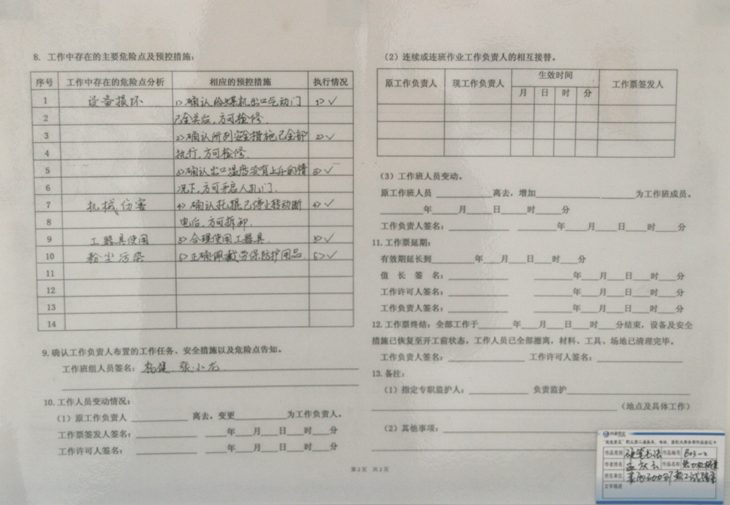 8. 工作中存在的主要危险点及预控措施：
序号 工作中存在的危险点分析 相应的预控措施 执行情况
1 设备损坏 1>确认给煤机出口气动门 1>✓
2 已全关后，方可检修.
3 2>确认所列安全措施已全部 2>✓
4 执行，方可检修.
5 3>确认出口温度没有上升的情 3>✓
6 况下，方可开启人孔门.
7 机械伤害 4>确认机械已停止转动断 4>✓
8 电后，方可拆卸.
9 工器具使用 5>合理使用工器具. 5>✓
10 粉尘污染 6>正确佩戴劳保防护用品. 6>✓
11
12
13
14
9.确认工作负责人布置的工作任务、安全措施以及危险点告知。
工作班组人员签名： 张小龙
10.工作人员变动情况：
（1）原工作负责人 离去，变更 为工作负责人。
工作票签发人签名： 年 月 日 时 分
工作许可人签名： 年 月 日 时 分
（2）连续或连班作业工作负责人的相互接替。
原工作负责人 现工作负责人 生效时间 工作票签发人
月 日 时 分
（3）工作班人员变动。
原工作班人员 离去，增加 为工作班成员。
年 月 日 时 分
工作负责人签名： 年 月 日 时 分
11.工作票延期：
有效期延长到 年 月 日 时 分
值 长 签 名： 年 月 日 时 分
工作许可人签名： 年 月 日 时 分
工作负责人签名： 年 月 日 时 分
12.工作票终结：全部工作于 年 月 日 时 分结束，设备及安全
措施已恢复至开工前状态，工作人员已全部撤离，材料、工具、场地已清理完毕。
工作负责人签名： 工作许可人签名：
13.备注：
（1）指定专职监护人： 负责监护
（地点及具体工作）
（2）其他事项：
第2页 共2页
作品类别 硬笔书法 作品编号
作者姓名 作品名称
所在单位